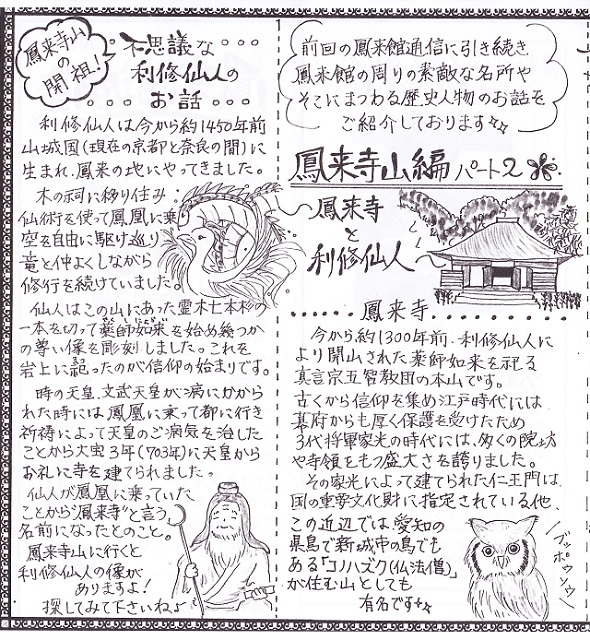 前回の鳳来館通信に引き続き
鳳来館の周りの素敵な名所や
そこにまつわる歴史人物のお話を
ご紹介しております
鳳来寺山編 パート2
鳳来寺
と
利修仙人
鳳来寺
今から約1300年前、利修仙人に
より開山された薬師如来を祀る
真言宗五智教団の本山です。
古くから信仰を集め江戸時代には
幕府からも厚く保護を受けたため
3代将軍家光の時代には、多くの院坊
や寺領をもつ盛大さを誇りました。
その家光によって建てられた仁王門は、
国の重要文化財に指定されている他、
この近辺では、愛知の
県鳥で新城市の鳥でも
ある「コノハズク(仏法僧)」
が住む山としても
有名です
ブッポウソウ
鳳来寺山
の
開祖!
不思議な
利修仙人の
お話
利修仙人は今から約1450年前
山城国(現在の京都と奈良の間)に
生まれ、鳳来の地にやってきました。
木の祠に移り住み
仙術を使って鳳凰に乗り
空を自由に駆け巡り
竜と仲よくしながら
修行を続けていました。
仙人はこの山にあった霊木七本杉の
一本を切って薬師如来を始め幾つか
の尊い像を彫刻しました。これを
岩上に祀ったのが信仰の始まりです。
時の天皇、文武天皇が病にかから
れた時には鳳凰に乗って都に行き
祈祷によって天皇のご病気を治した
ことから大宝3年(703年)に天皇から
お礼に寺を建てられました。
仙人が鳳凰に乗っていた
ことから"鳳来寺"と言う
名前になったとのこと。
鳳来寺山に行くと
利修仙人の像が
ありますよ!
探してみて下さいね♪